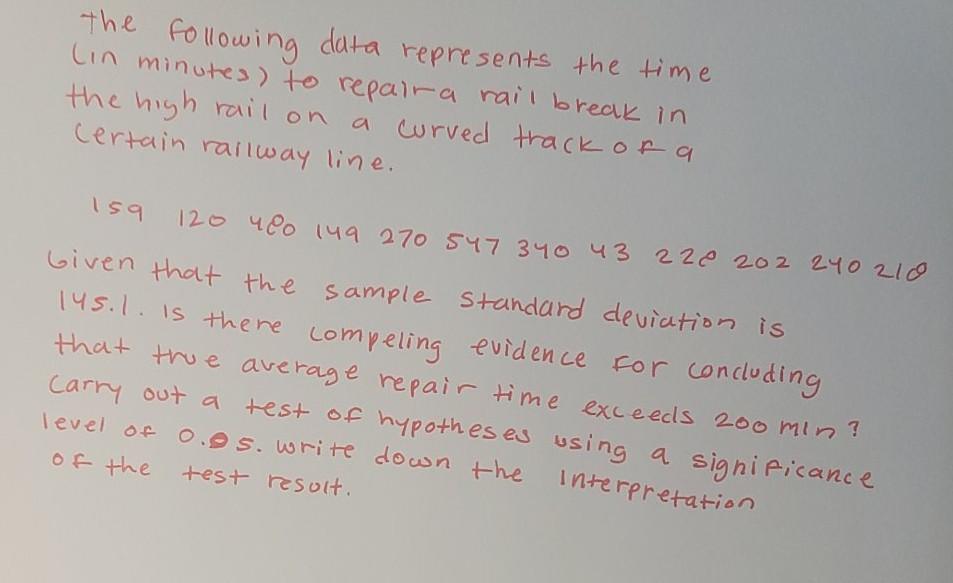 The following data represents the time
(in minutes) to repair a rail break in
the high rail on a curved track of a
certain railway line.
159 120 480 149 270 547 340 43 228 202 240 218
Given that the sample standard deviation is
145.1. Is there compeling evidence for concluding
that true average repair time exceeds 200 min?
Carry out a test of hypotheses using a significance
level of 0.05. write down the interpretation
of the test result.